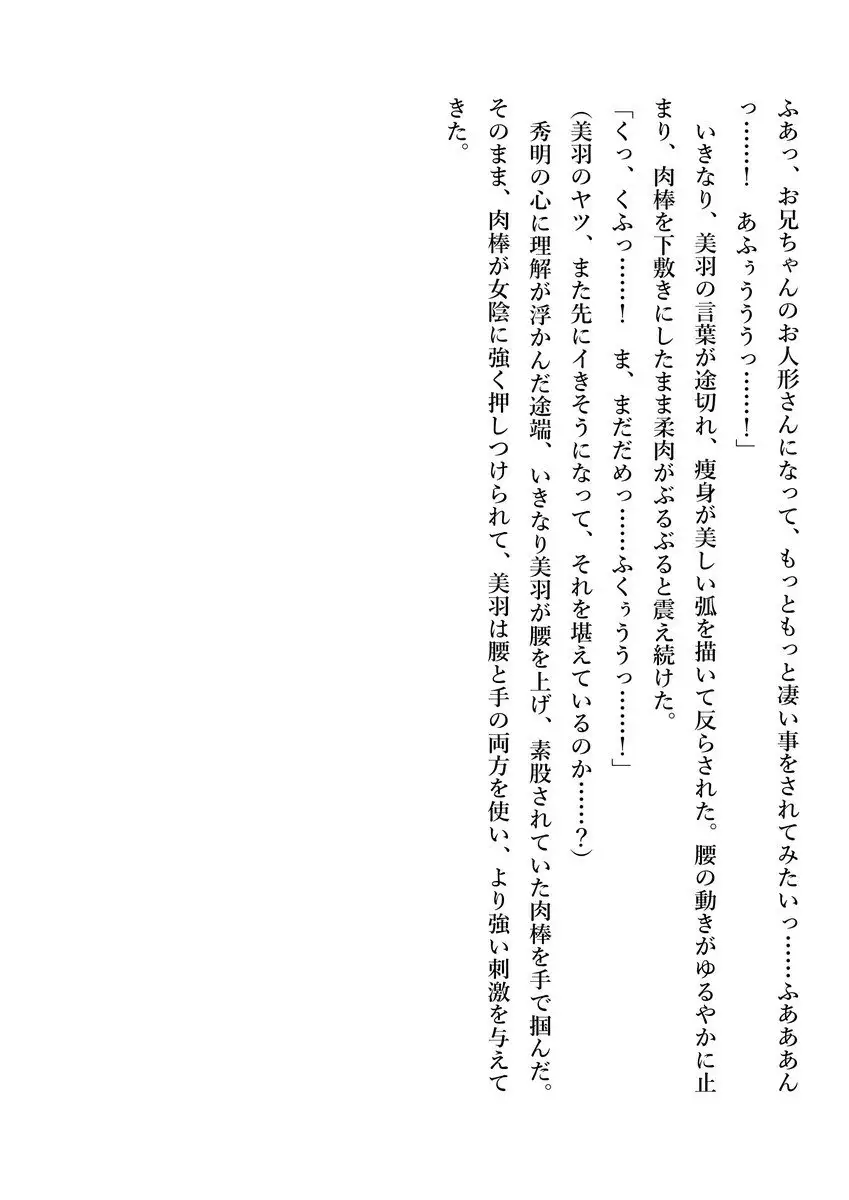 ふあっ、お兄ちゃんのお人形さんになって、もっともっと凄い事をされてみたいっ……ふあああん
っ……！　あふぅうううっ……！」
　いきなり、美羽の言葉が途切れ、痩身が美しい弧を描いて反らされた。腰の動きがゆるやかに止
まり、肉棒を下敷きにしたまま柔肉がぶるぶると震え続けた。
「くっ、くふっ……！　ま、まだだめっ……ふくぅううっ……！」
（美羽のヤツ、また先にイきそうになって、それを堪えているのか……？）
　秀明の心に理解が浮かんだ途端、いきなり美羽が腰を上げ、素股されていた肉棒を手で掴んだ。
そのまま、肉棒が女陰に強く押しつけられて、美羽は腰と手の両方を使い、より強い刺激を与えて
きた。